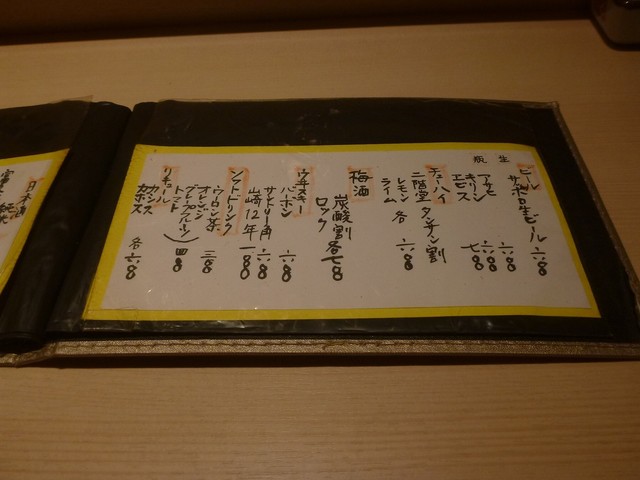 ビール
生 サッポロ生ビール 六〇〇
瓶 アサヒ 六〇〇
キリン 六〇〇
エビス 七〇〇
チューハイ
二階堂タンサン割
レモン
ライム 各 六〇〇
梅酒
炭酸割
ロック 各七〇〇
ウヰスキー
バーボン 六〇〇
サントリー角 六〇〇
山崎12年 一〇〇〇
ソフトドリンク
ウーロン茶 三〇〇
オレンジ
グレープフルーツ
トマト 四〇〇
リキュール
カシス
カボス 各 六〇〇
日本酒